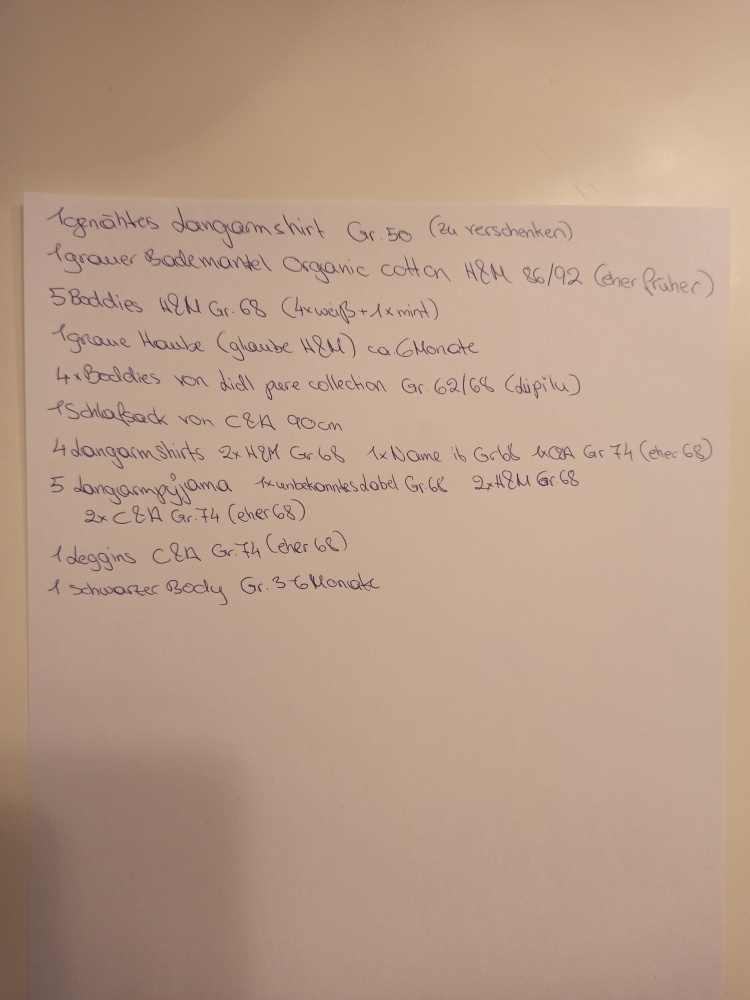 1 genähtes Langarmshirt Gr. 50 (zu verschenken)
1 grauer Bademantel Organic cotton H&M 86/92 (eher früher)
5 Boddies H&M Gr. 68 (4x weiß + 1x mint)
1 graue Haube (glaube H&M) ca. 6 Monate
4x Boddies von Lidl pure collection Gr. 62/68 (lupilu)
1 Schlafsack von C&A 90cm
4 Langarmshirts 2x H&M Gr. 68 1x Name it Gr 68 1x C&A Gr 74 (eher 68)
5 Langarmpyjama 1x unbekanntes Label Gr. 68 2x H&M Gr. 68
2x C&A Gr. 74 (eher 68)
1 Leggins C&A Gr. 74 (eher 68)
1 schwarzer Body Gr. 3-6 Monate